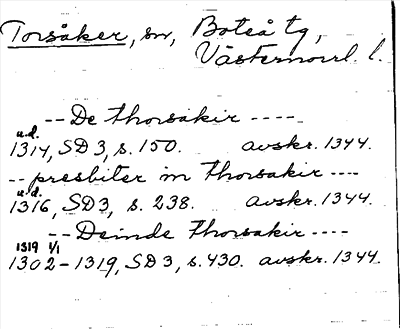 Torsåker, sn, Boteå tg,
Västernorrl. l.
-- De thorsakir ----
u.d.
1314, SD 3, s. 150. avskr. 1344.
-- presbiter in thorsakir ---
u.d.
1316, SD3, s. 238. avskr. 1344.
-- Deinde thorsakir ----
1319 1/1
1302-1319, SD 3, s. 430. avskr. 1344.